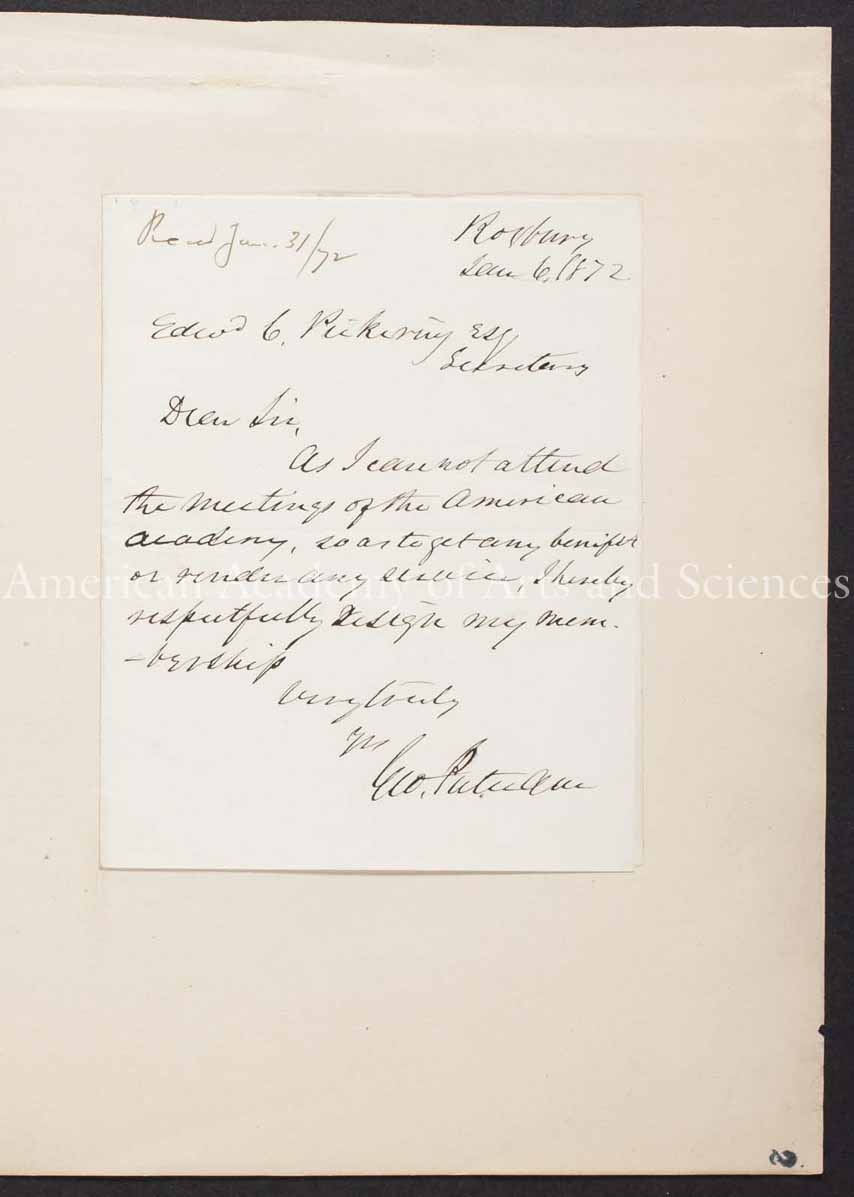 Rec'd Jan. 31/72
Roxbury
Jan 6, 1872
Edwd C. Pickering Esq
Secretary
Dear Sir,
As I can not attend
the meetings of the American
Academy, so as to get any benefit
or render any service, I hereby
American Academy of Arts and Sciences
respectfully resign my mem-
-bership
Very truly
Yrs
Geo. Putnam